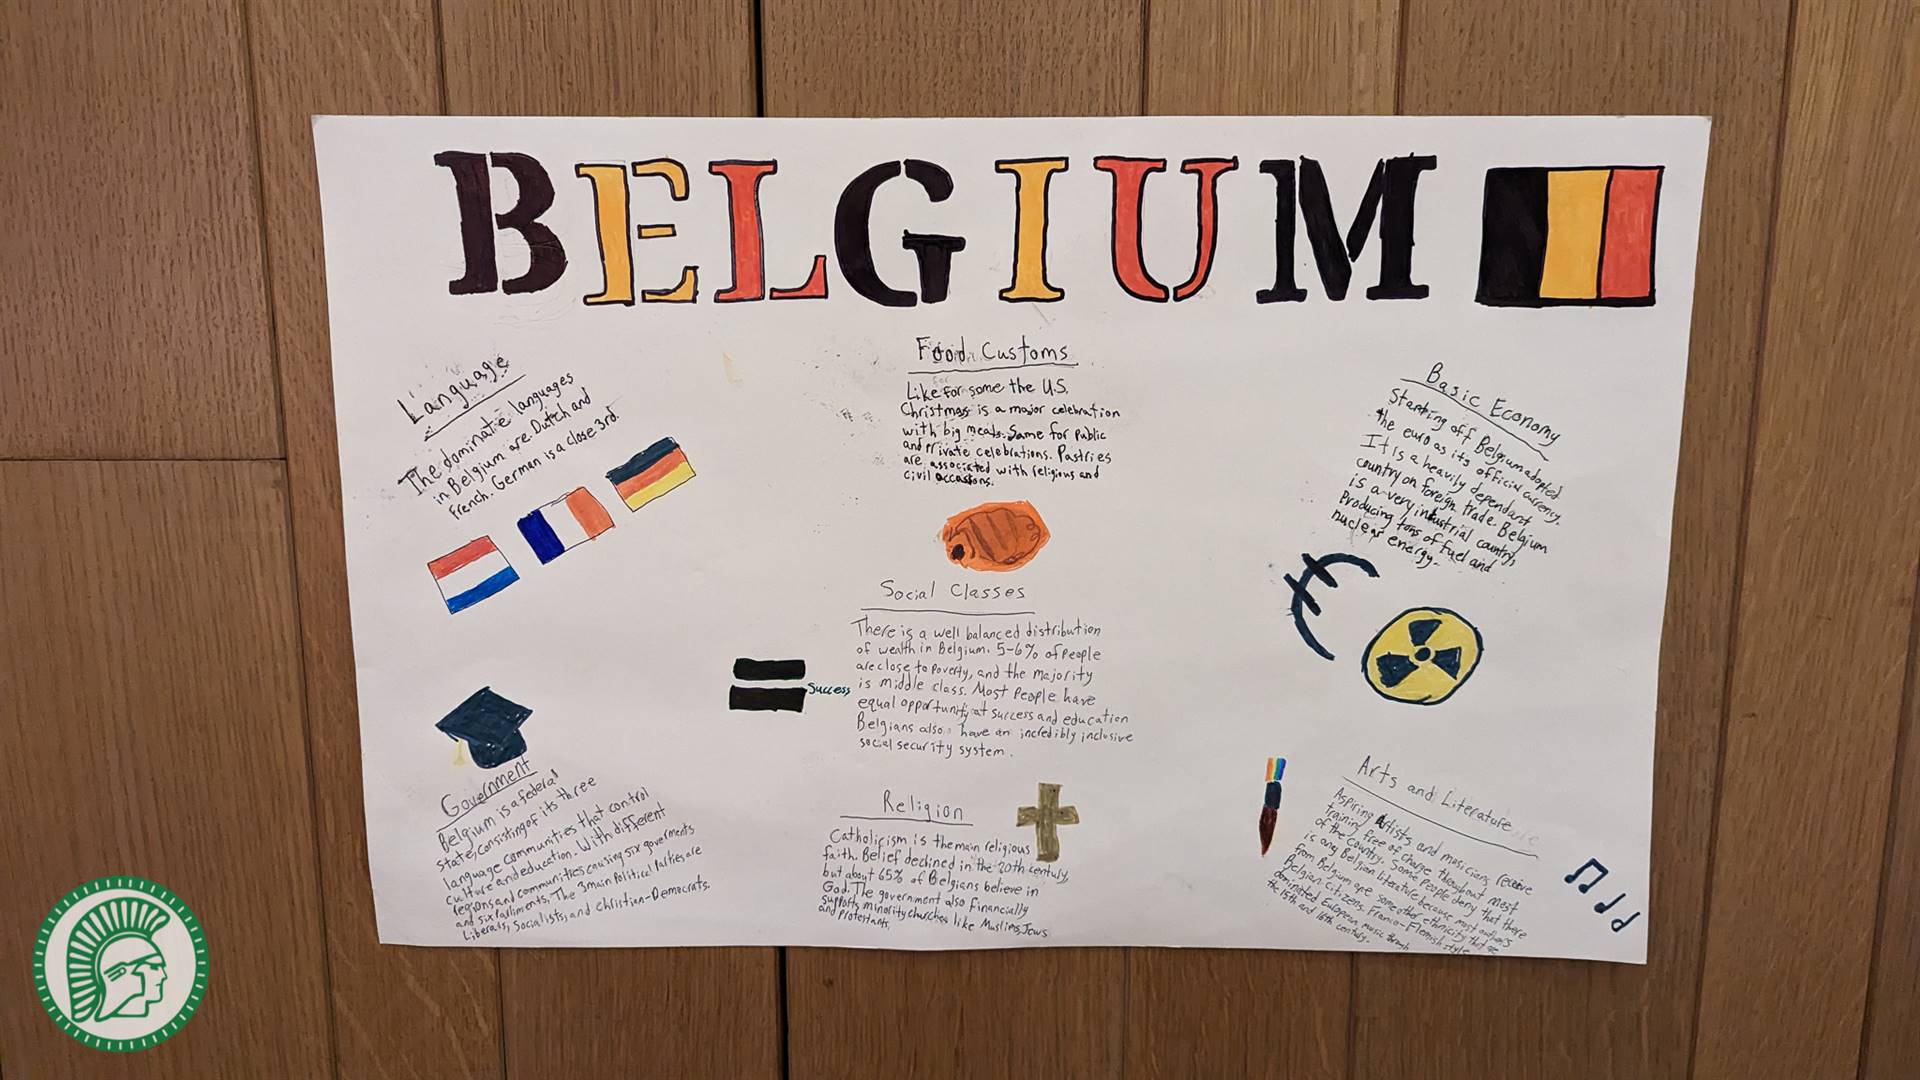 BELGIUM
Language
The dominatie languages
in Belgium are Dutch and
French. German is a close 3rd.
Food Customs
Like for some the U.S.
Christmas is a major celebration
with big meals. Same for Public
and Private celebrations. Pastries
are associated with religious and
civil occassions.
Basic Economy
Starting off Belgium adopted
the euro as its official currency.
It is a heavily dependant
country on foreign trade. Belgium
is a very industrial country,
Producing tons of fuel and
nuclear energy.
Social Classes
There is a well balanced distribution
of wealth in Belgium. 5-6% of People
are close to poverty, and the majority
is middle class. Most People have
equal opportunity at success and education
Belgians also have an incredibly inclusive
social security system.
Success
Government
Belgium is a federal
state, consisting of its three
language communities that control
culture and education. With different
regions and communities causing six goverments
and six Parliments. The 3 main Political Parties are
Liberals, Socialists, and Christian-Democrats.
Religion
Catholicism is the main religious
faith. Belief declined in the 20th century,
but about 65% of Belgians believe in
God. The government also Financially
supports minority churches like Muslims, Jews
and Protestants.
Arts and Literature
Aspiring Artists and musicians receive
training free of charge throughout most
of the country. Some People deny that there
is any Belgian literature because most authors
from Belgium are some other ethnicity that are
Belgian Citizens. Franco-Flemish style
dominated European music through
the 15th and 16th century.